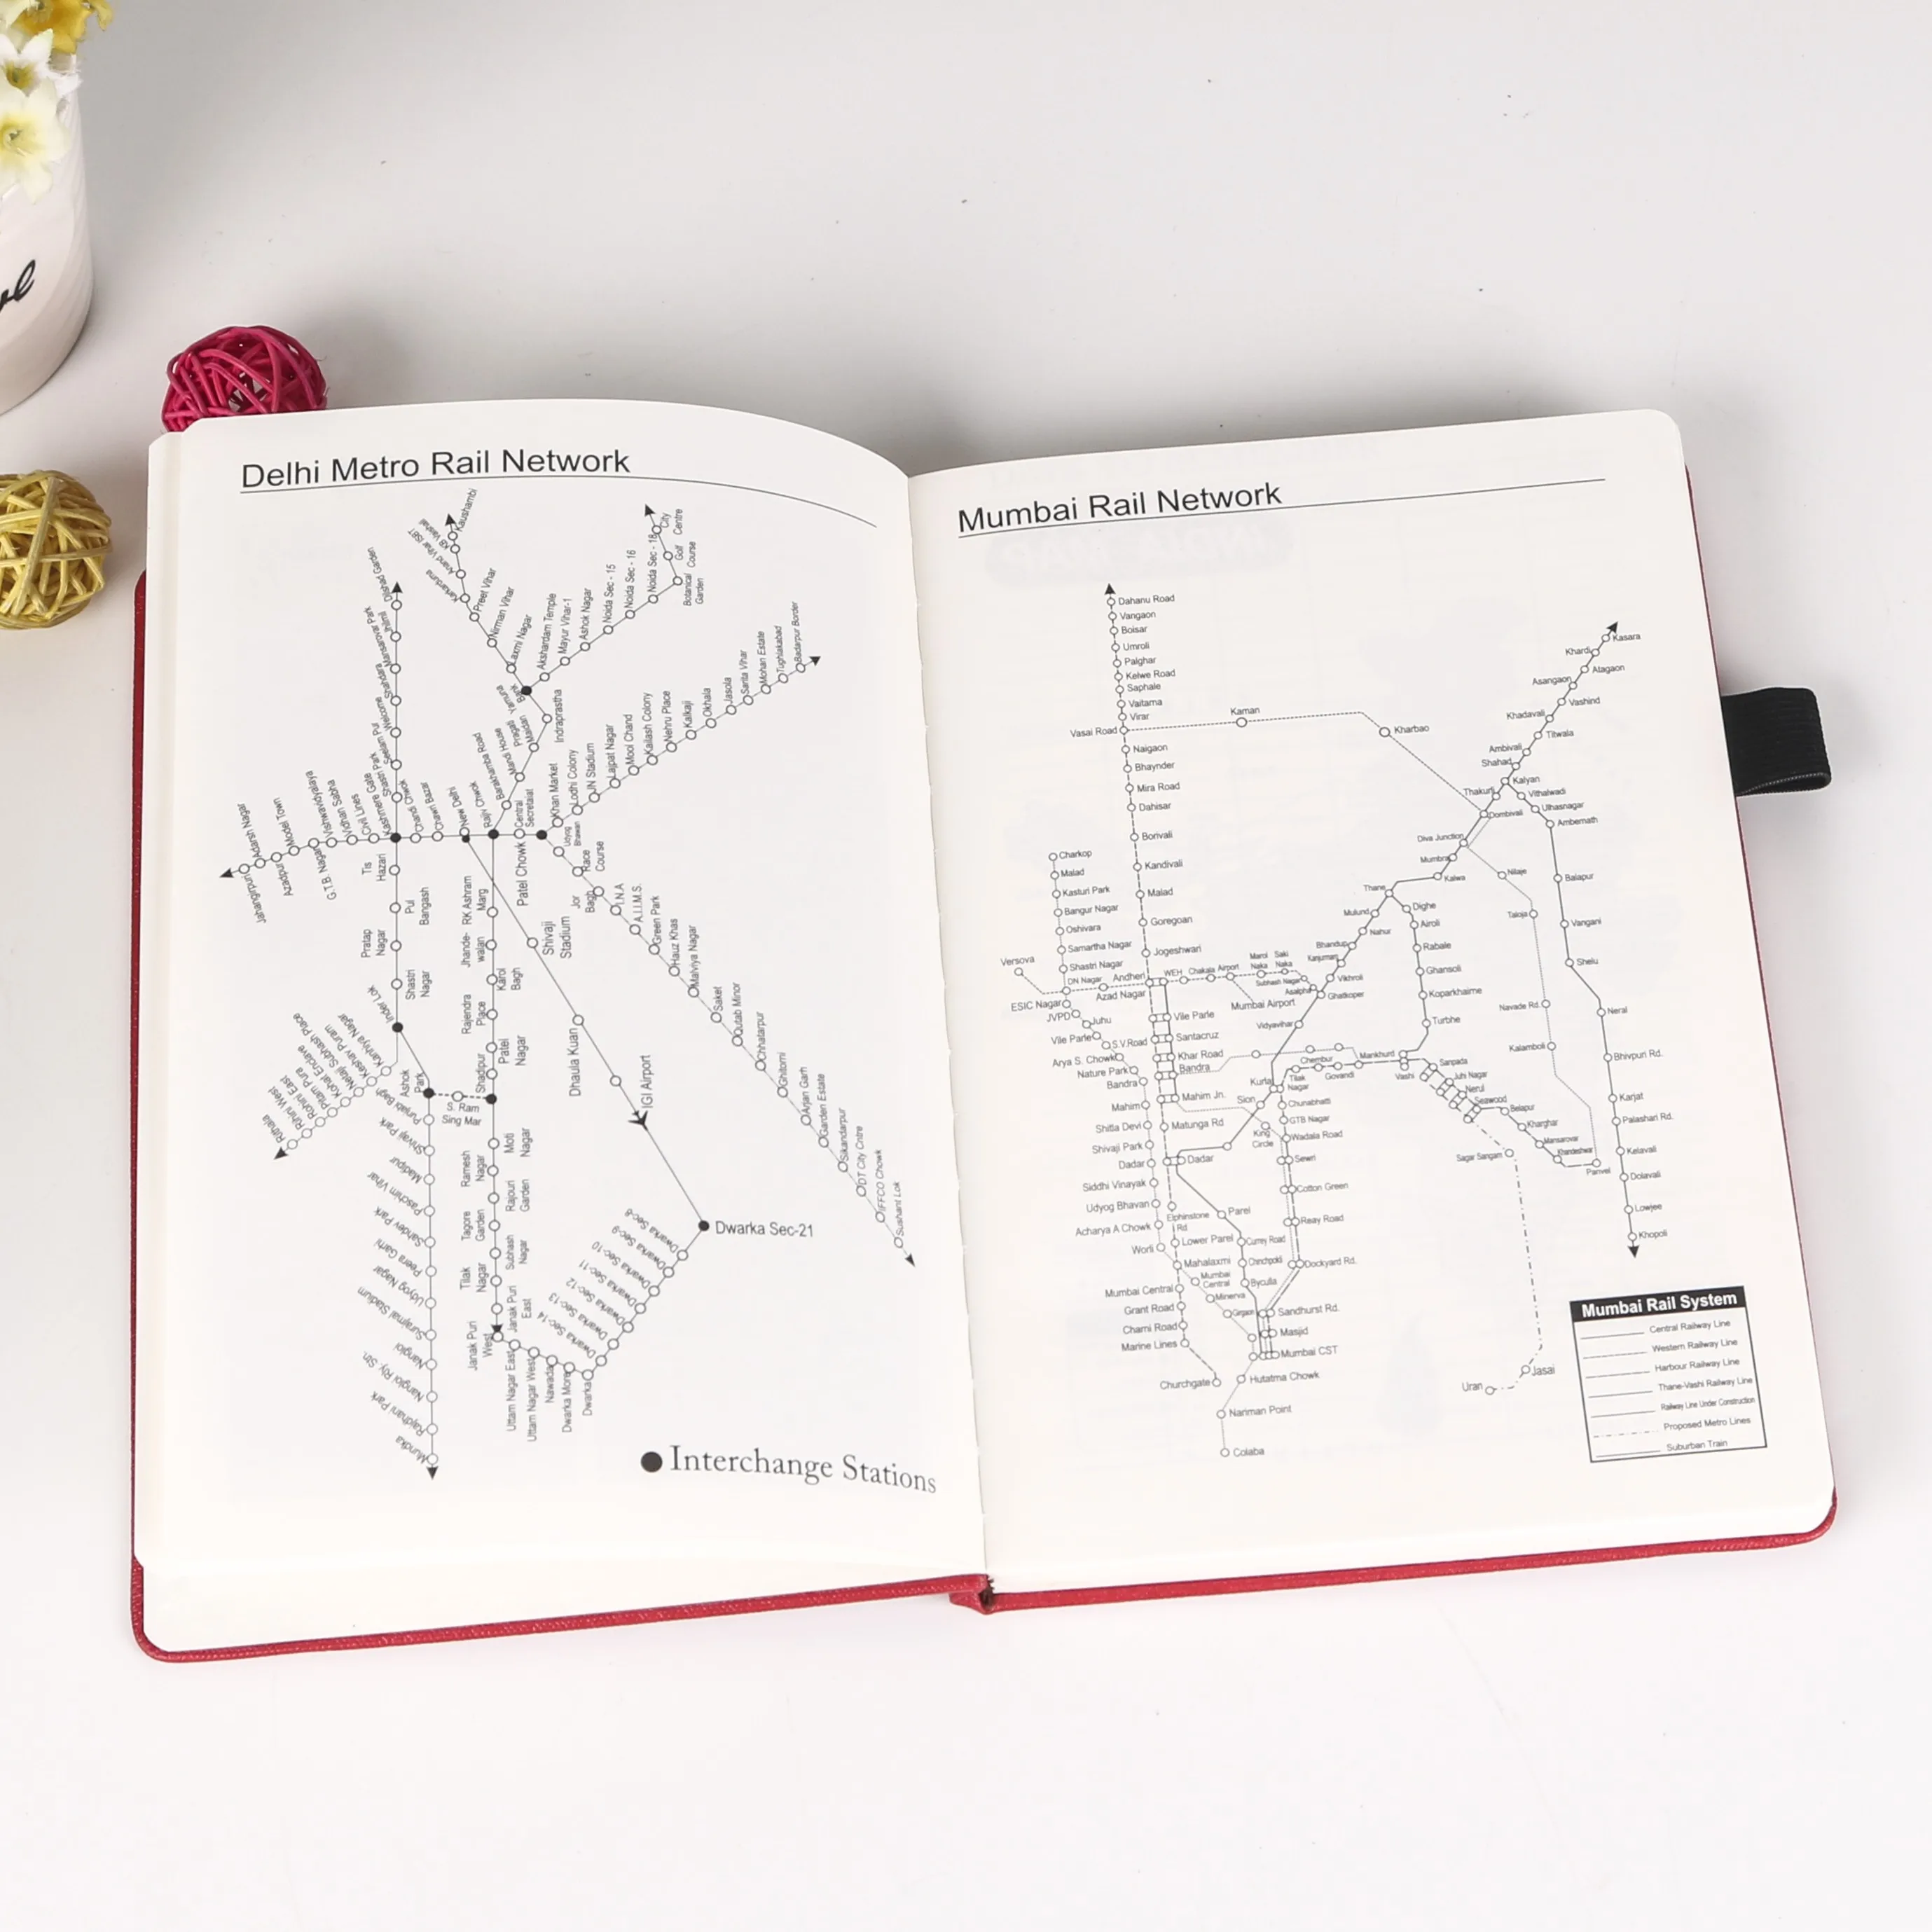 Delhi Metro Rail Network
Jahangirpuri
Adarsh Nagar
Azadpur
Model Town
G.T.B. Nagar
Vishwavidyalaya
Vidhan Sabha
Civil Lines
Kashmere Gate
Dilshad Garden
Jhilmil
Mansarovar Park
Shahdara
Welcome
Seelam Pul
Shastri Park
Chandi Chwok
Chawri Bazar
New Delhi
Rajiv Chwok
Patel Chowk
Central
Secretariat
Kaushambi
Anand Vihar ISBT
Karkarduma
Preet Vihar
Nirman Vihar
Laxmi Nagar
Yamuna
Bank
Akshardam Temple
Mayur Vihar-1
Ashok Nagar
Noida Sec - 15
Noida Sec - 16
Noida Sec - 18
Botanical
Garden
Golf
Course
City
Centre
Indraprastha
Pragati
Maidan
Mandi House
Barakhamba Road
Khan Market
Lodhi Colony
JN Stadium
Lajpat Nagar
Mool Chand
Kailash Colony
Nehru Place
Kalkaji
Okhala
Jasola
Sarita Vihar
Mohan Estate
Tughlakabad
Badarpur Border
Udyog
Bhawan
Race
Course
Jor
Bagh
I.N.A
A.I.I.M.S.
Green Park
Hauz Khas
Malviya Nagar
Saket
Qutab Minor
Chhatarpur
Ghitorni
Arjan Garh
Garden Estate
Sikandarpur
DT City Cntre
IFFCO Chowk
Sushant Lok
Tis
Hazari
Pul
Bangash
Pratap
Nagar
Shastri
Nagar
Inder Lok
Kanhiya Nagar
Keshav Puram
Netaji Subhash Place
Kohat Enclave
Pitam Pura
Rohini East
Rihini West
Rithala
Ashok
Park
S. Ram
Sing Mar
Punjabi Bagh
Shivaji Park
Madipur
Paschim Vihar
Sahdev Park
Peera Garhi
Udyog Nagar
Surajmal Stadium
Nangloi
Nangloi Rly. Stn.
Rajdhani Park
Mundka
RK Ashram
Marg
Jhande-
walan
Karol
Bagh
Rajendra
Place
Patel
Nagar
Shadipur
Moti
Nagar
Ramesh
Nagar
Rajouri
Garden
Tagore
Garden
Subhash
Nagar
Tilak
Nagar
Janak Puri
East
Janak Puri
West
Uttam Nagar East
Uttam Nagar West
Nawada
Dwarka More
Dwarka
Dwarka Sec-14
Dwarka Sec-13
Dwarka Sec-12
Dwarka Sec-11
Dwarka Sec-10
Dwarka Sec-9
Dwarka Sec-8
Dwarka Sec-21
Shivaji
Stadium
Dhaula Kuan
IGI Airport
Interchange Stations
Mumbai Rail Network
Dahanu Road
Vangaon
Boisar
Umroli
Palghar
Kelwe Road
Saphale
Vaitarna
Virar
Vasai Road
Kaman
Kharbao
Naigaon
Bhaynder
Mira Road
Dahisar
Borivali
Kandivali
Malad
Goregoan
Jogeshwari
Charkop
Malad
Kasturi Park
Bangur Nagar
Oshivara
Samartha Nagar
Shastri Nagar
Versova
DN Nagar
Andheri
WEH
Chakala
Airport
Marol
Naka
Saki
Naka
Subhash Nagar
Asalpha
ESIC Nagar
Azad Nagar
Mumbai Airport
JVPD
Juhu
Vile Parle
S.V.Road
Arya S. Chowk
Nature Park
Bandra
Mahim
Shitla Devi
Shivaji Park
Dadar
Siddhi Vinayak
Udyog Bhavan
Acharya A Chowk
Worli
Mumbai Central
Grant Road
Charni Road
Marine Lines
Churchgate
Vile Parle
Santacruz
Khar Road
Bandra
Mahim Jn.
Matunga Rd
Dadar
Elphinstone
Rd
Lower Parel
Mahalaxmi
Mumbai
Central
Minerva
Girgaon
Parel
Currey Road
Chinchpokli
Byculla
Sandhurst Rd.
Masjid
Mumbai CST
Hutatma Chowk
Nariman Point
Colaba
Kasara
Khardi
Atagaon
Asangaon
Vashind
Khadavali
Titwala
Ambivali
Shahad
Kalyan
Thakurli
Vithalwadi
Ulhasnagar
Ambernath
Dombivali
Diva Junction
Mumbra
Kalwa
Thane
Mulund
Nahur
Bhandup
Kanjurmarg
Vikhroli
Ghatkoper
Vidyavihar
Kurla
Sion
Tilak
Nagar
Chembur
Govandi
Mankhurd
Vashi
Chunabhatti
GTB Nagar
King
Circle
Wadala Road
Sewri
Cotton Green
Reay Road
Dockyard Rd.
Dighe
Airoli
Rabale
Ghansoli
Koparkhairne
Turbhe
Sanpada
Juhi Nagar
Nerul
Seawood
Belapur
Kharghar
Mansarovar
Khandeshwar
Panvel
Nilaje
Taloja
Navade Rd.
Kalamboli
Balapur
Vangani
Shelu
Neral
Bhivpuri Rd.
Karjat
Palashari Rd.
Kelavali
Dolavali
Lowjee
Khopoli
Sagar Sangam
Jasai
Uran
Mumbai Rail System
Central Railway Line
Western Railway Line
Harbour Railway Line
Thane-Vashi Railway Line
Railway Line Under Construction
Proposed Metro Lines
Suburban Train